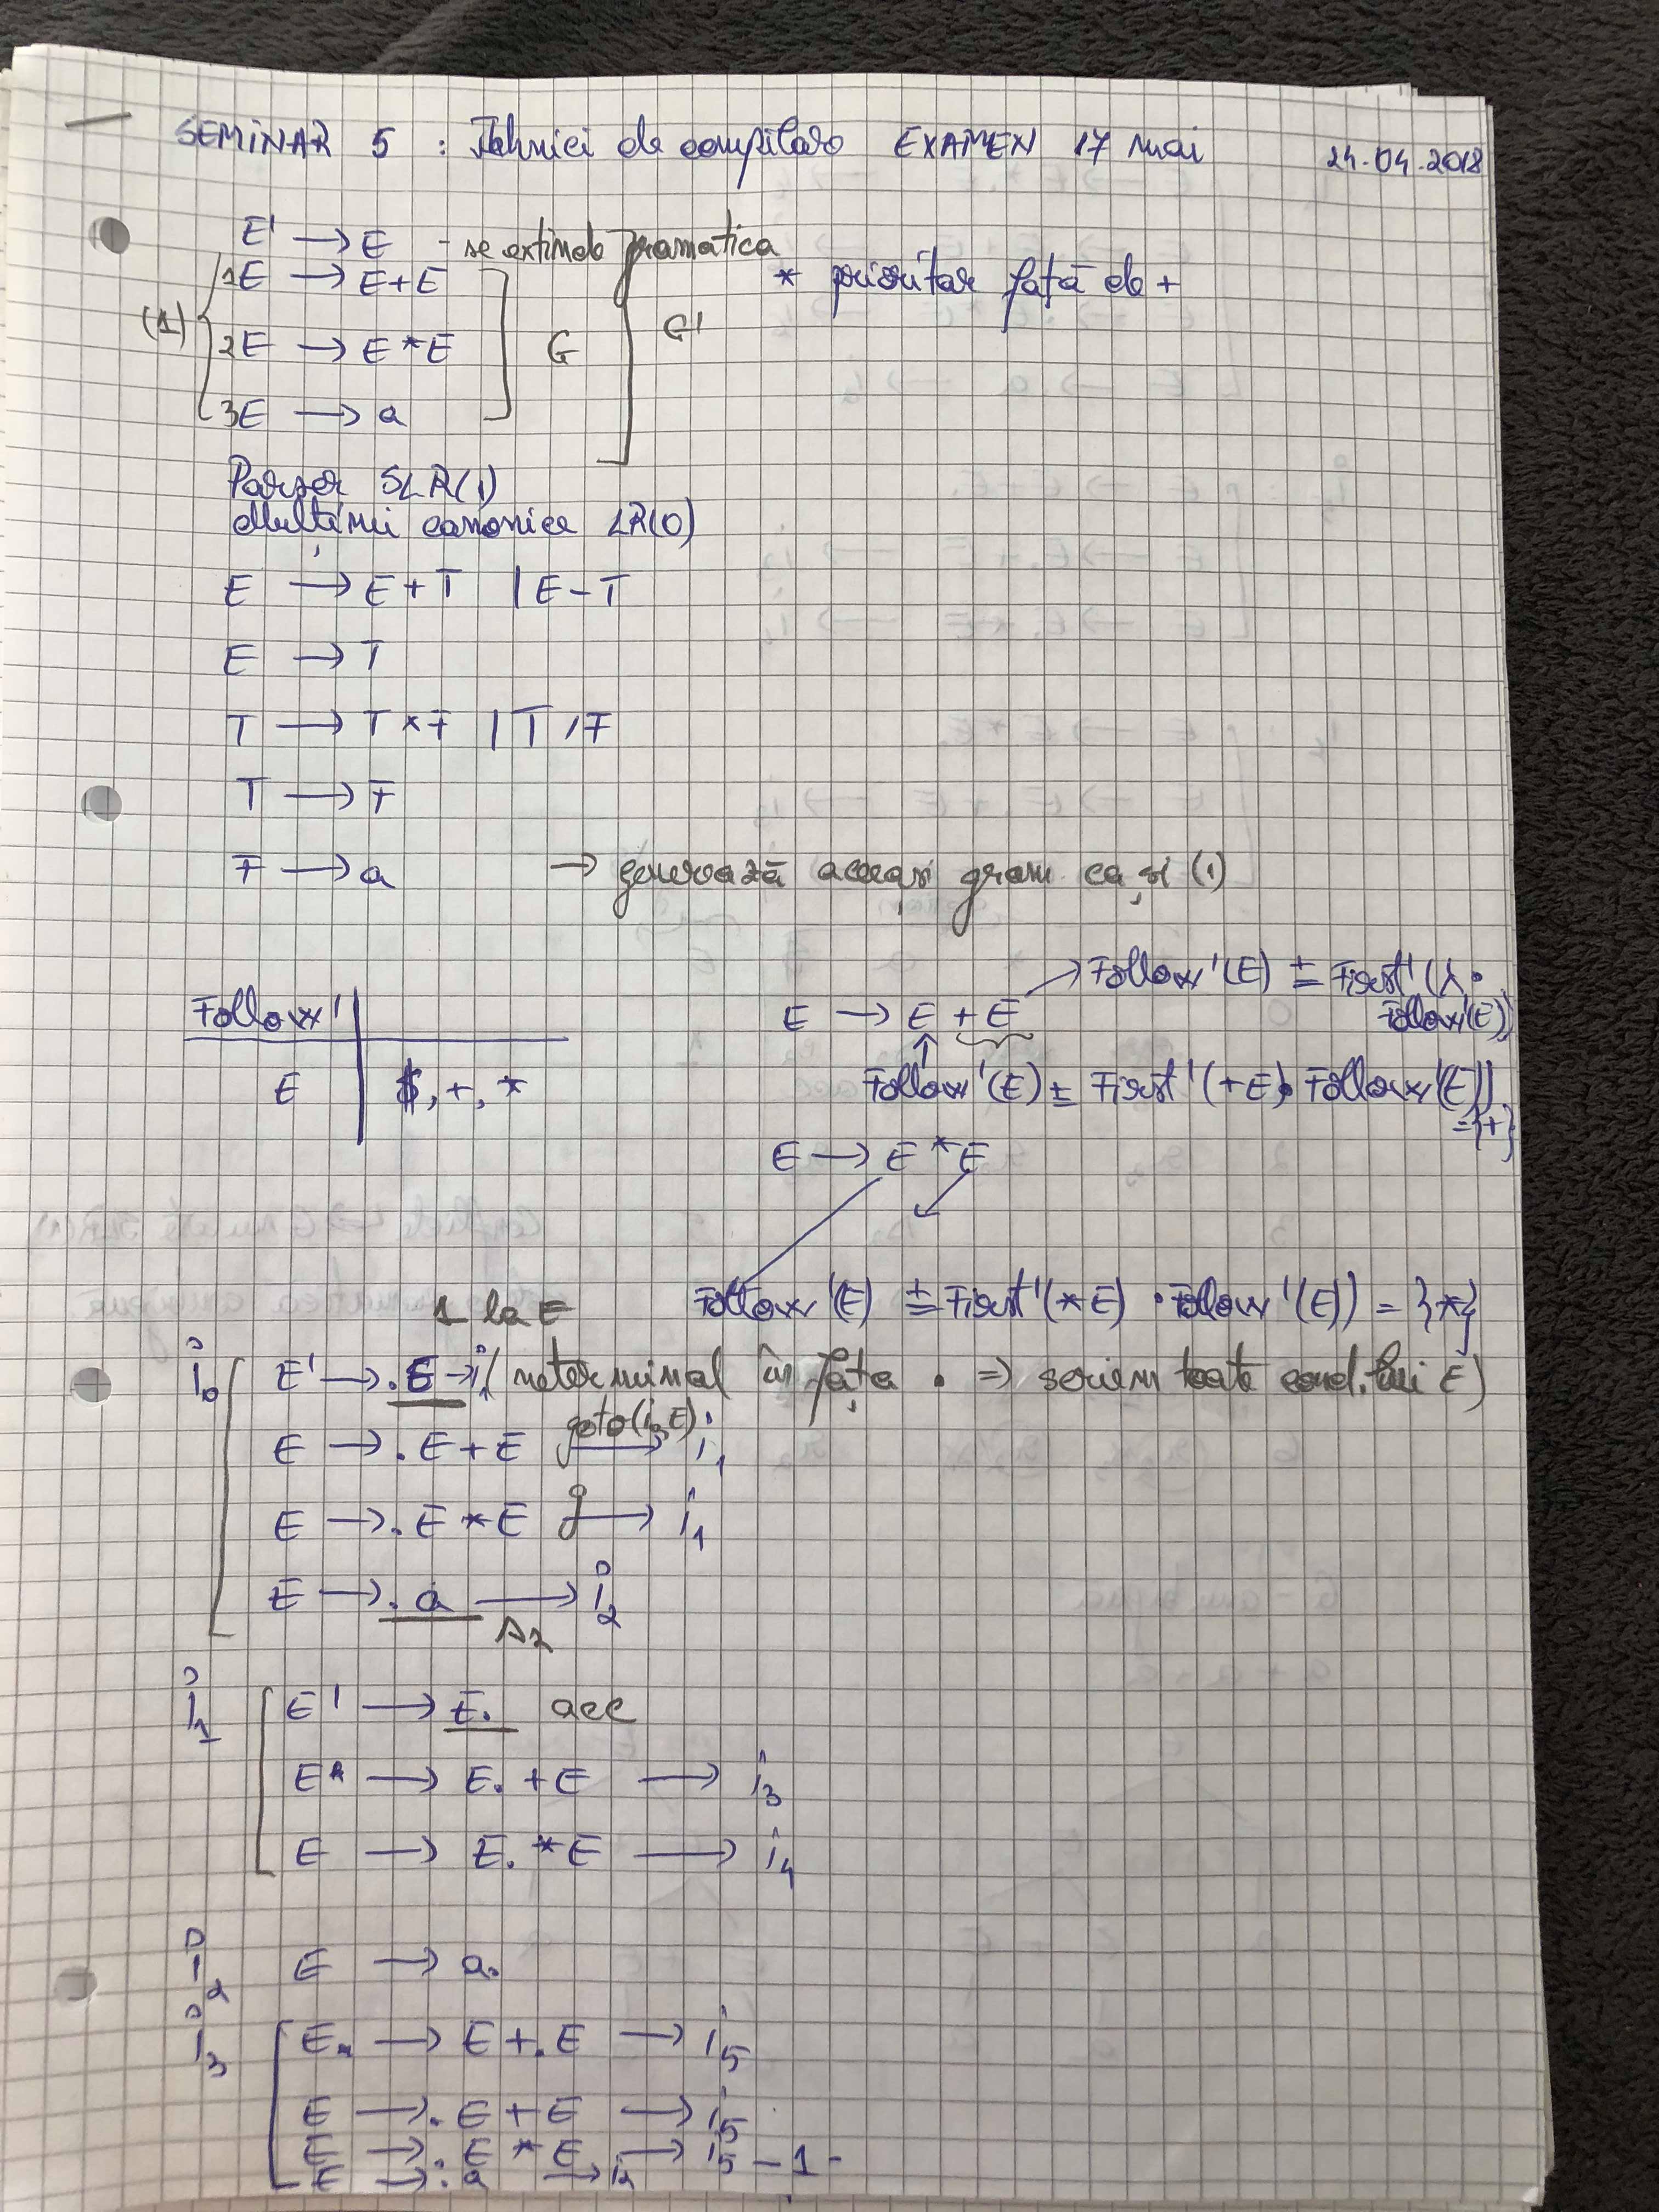 SEMINAR 5 : Tehnici de compilare EXAMEN 17 mai 24.04.2018
E' → E - se extinde gramatica
1E → E+E * prioritar față de +
(1) 2E → E*E G G'
3E → a
Parser SLR(1)
Mulțimi canonice LR(0)
E → E+T | E-T
E → T
T → T*F | T/F
T → F
F → a → generează aceeași gram ca și (1)
Follow'
E $, +, *
E → E + E → Follow'(E) ± First'(λ · Follow'(E))
Follow'(E) ± First'(+E) · Follow'(E)) = {+}
E → E * E
Follow'(E) ± First'(*E) · Follow'(E)) = {*}
1 la E
i0 E' → .E → i1 ( neterminal în fața . ⇒ scriem toate cond. lui E)
E → .E+E goto(i0,E) → i1
E → .E*E g → i1
E → .a → i2
s2
i1 E' → E. acc
E → E.+E → i3
E → E.*E → i4
i2 E → a.
i3 E → E+.E → i5
E → .E+E → i5
E → .E*E → i5 -1-
E → .a → i2